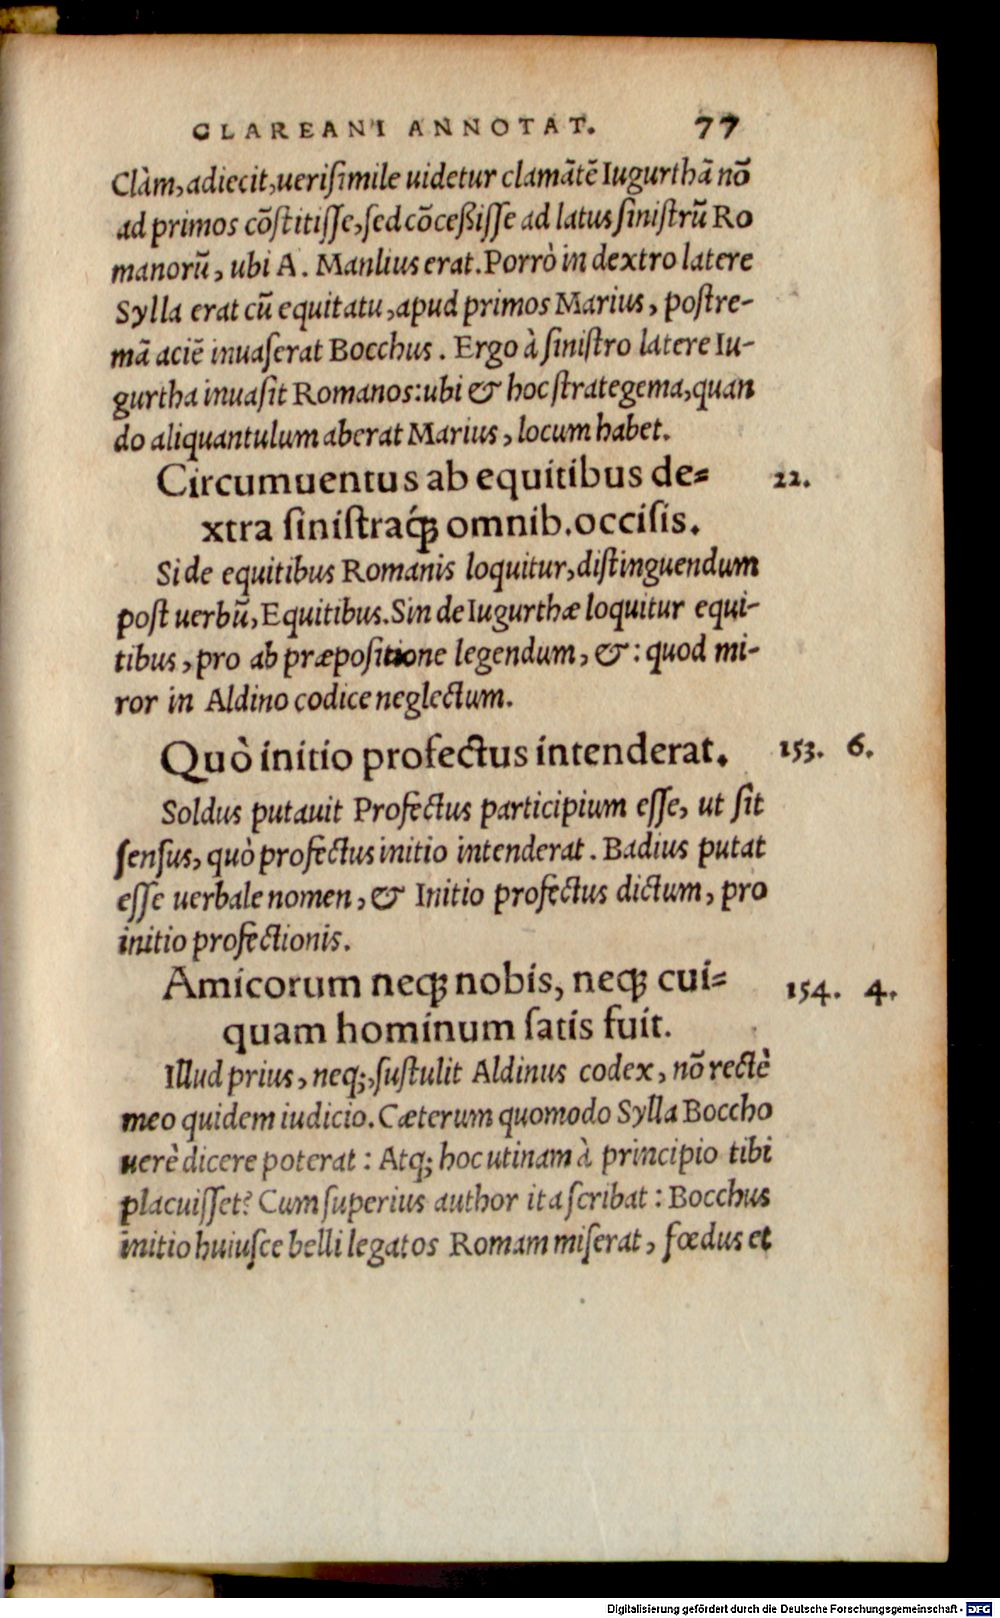 GLAREANI ANNOTAT. 77
Clàm, adiecit, uerisimile uidetur clamãtẽ Iugurthã nõ
ad primos cõstitisse, sed cõceßisse ad latus sinistrũ Ro
manorũ, ubi A. Manlius erat. Porrò in dextro latere
Sylla erat cũ equitatu, apud primos Marius, postre-
mã aciẽ inuaserat Bocchus. Ergo à sinistro latere Iu-
gurtha inuasit Romanos: ubi & hoc strategema, quan
do aliquantulum aberat Marius, locum habet.
Circumuentus ab equitibus de- 22.
xtra sinistraq́; omnib. occisis.
Si de equitibus Romanis loquitur, distinguendum
post uerbũ, Equitibus. Sin de Iugurthæ loquitur equi-
tibus, pro ab præpositione legendum, &: quod mi-
ror in Aldino codice neglectum.
Quò initio profectus intenderat. 153. 6.
Soldus putauit Profectus participium esse, ut sit
sensus, quò profectus initio intenderat. Badius putat
esse uerbale nomen, & Initio profectus dictum, pro
initio profectionis.
Amicorum neq; nobis, neq; cui- 154. 4.
quam hominum satis fuit.
Illud prius, neq;, sustulit Aldinus codex, nõ rectè
meo quidem iudicio. Cæterum quomodo Sylla Boccho
uerè dicere poterat: Atq; hoc utinam à principio tibi
placuisset? Cum superius author ita scribat: Bocchus
initio huiusce belli legatos Romam miserat, fœdus et
Digitalisierung gefördert durch die Deutsche Forschungsgemeinschaft - DFG